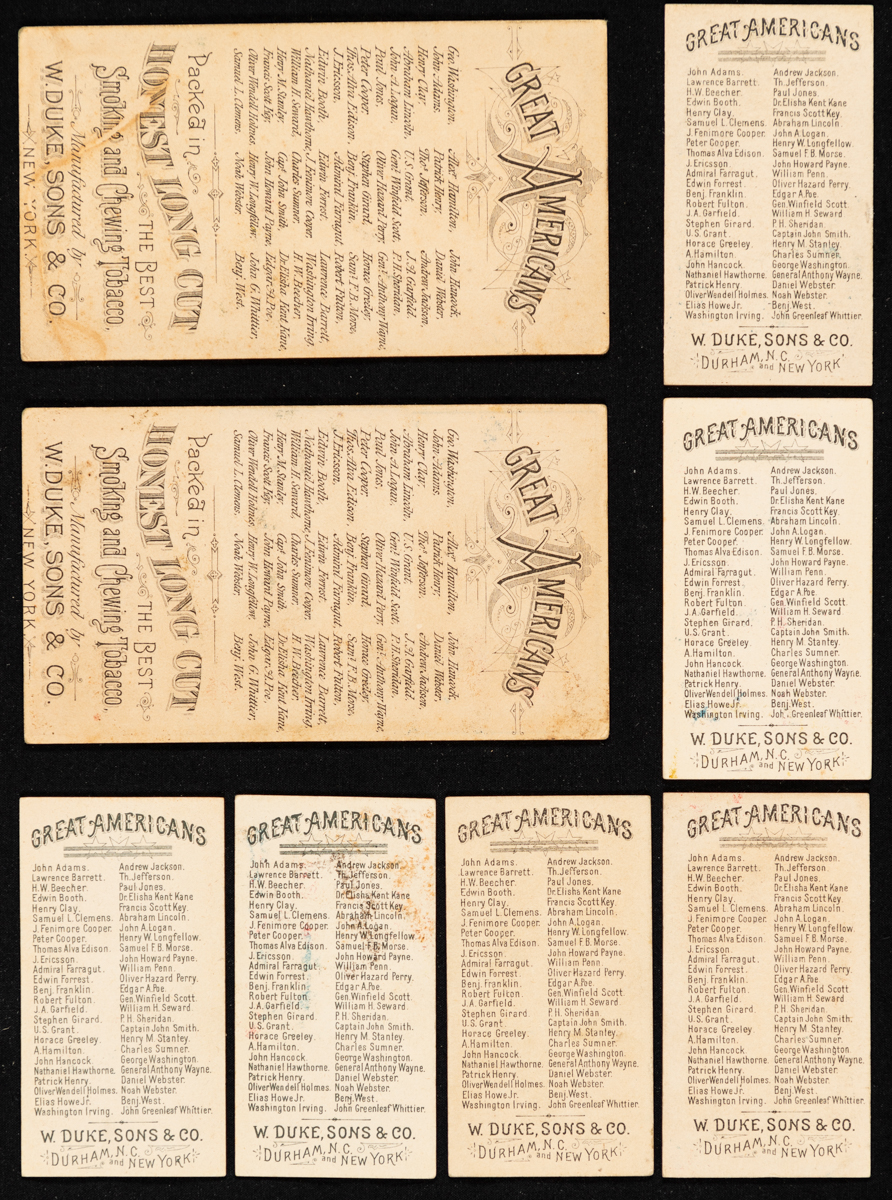 GREAT AMERICANS
Geo. Washington, Alex. Hamilton, John Hancock,
John Adams, Patrick Henry, Daniel Webster,
Henry Clay, Thos. Jefferson, Andrew Jackson,
Abraham Lincoln, U.S. Grant, J.A. Garfield,
John A. Logan, Genl. Winfield Scott, P.H. Sheridan,
Paul Jones, Oliver Hazard Perry, Genl. Anthony Wayne,
Peter Cooper, Stephen Girard, Horace Greeley,
Thos. Alva Edison, Benj. Franklin, Saml. F.B. Morse,
J. Ericsson, Admiral Farragut, Robert Fulton,
Edwin Booth, Edwin Forrest, Lawrence Barrett,
Nathaniel Hawthorne, J. Fenimore Cooper, Washington Irving,
William H. Seward, Charles Sumner, H.W. Beecher,
Henry M. Stanley, Capt. John Smith, Dr. Elisha Kent Kane,
Francis Scott Key, John Howard Payne, Edgar A. Poe,
Oliver Wendell Holmes, Henry W. Longfellow, John G. Whittier,
Samuel L. Clemens, Noah Webster, Benj. West.
Packed in
HONEST LONG CUT
THE BEST
Smoking and Chewing Tobacco.
Manufactured by
W. DUKE, SONS & CO.
NEW YORK.
GREAT AMERICANS
John Adams. Andrew Jackson.
Lawrence Barrett. Th. Jefferson.
H.W. Beecher. Paul Jones.
Edwin Booth. Dr. Elisha Kent Kane
Henry Clay. Francis Scott Key.
Samuel L. Clemens. Abraham Lincoln.
J. Fenimore Cooper. John A. Logan.
Peter Cooper. Henry W. Longfellow.
Thomas Alva Edison. Samuel F.B. Morse.
J. Ericsson. John Howard Payne.
Admiral Farragut. William Penn.
Edwin Forrest. Oliver Hazard Perry.
Benj. Franklin. Edgar A. Poe.
Robert Fulton. Gen. Winfield Scott.
J.A. Garfield. William H. Seward
Stephen Girard. P.H. Sheridan.
U.S. Grant. Captain John Smith.
Horace Greeley. Henry M. Stanley.
A. Hamilton. Charles Sumner.
John Hancock. George Washington.
Nathaniel Hawthorne. General Anthony Wayne.
Patrick Henry. Daniel Webster.
Oliver Wendell Holmes. Noah Webster.
Elias Howe Jr. Benj. West.
Washington Irving. John Greenleaf Whittier.
W. DUKE, SONS & CO.
DURHAM, N.C. and NEW YORK
GREAT AMERICANS
Geo. Washington, Alex. Hamilton, John Hancock,
John Adams, Patrick Henry, Daniel Webster,
Henry Clay, Thos. Jefferson, Andrew Jackson,
Abraham Lincoln, U.S. Grant, J.A. Garfield,
John A. Logan, Genl. Winfield Scott, P.H. Sheridan,
Paul Jones, Oliver Hazard Perry, Genl. Anthony Wayne,
Peter Cooper, Stephen Girard, Horace Greeley,
Thos. Alva Edison, Benj. Franklin, Saml. F.B. Morse,
J. Ericsson, Admiral Farragut, Robert Fulton,
Edwin Booth, Edwin Forrest, Lawrence Barrett,
Nathaniel Hawthorne, J. Fenimore Cooper, Washington Irving,
William H. Seward, Charles Sumner, H.W. Beecher,
Henry M. Stanley, Capt. John Smith, Dr. Elisha Kent Kane,
Francis Scott Key, John Howard Payne, Edgar A. Poe,
Oliver Wendell Holmes, Henry W. Longfellow, John G. Whittier,
Samuel L. Clemens, Noah Webster, Benj. West.
Packed in
HONEST LONG CUT
THE BEST
Smoking and Chewing Tobacco.
Manufactured by
W. DUKE, SONS & CO.
NEW YORK.
GREAT AMERICANS
John Adams. Andrew Jackson.
Lawrence Barrett. Th. Jefferson.
H.W. Beecher. Paul Jones.
Edwin Booth. Dr. Elisha Kent Kane
Henry Clay. Francis Scott Key.
Samuel L. Clemens. Abraham Lincoln.
J. Fenimore Cooper. John A. Logan.
Peter Cooper. Henry W. Longfellow.
Thomas Alva Edison. Samuel F.B. Morse.
J. Ericsson. John Howard Payne.
Admiral Farragut. William Penn.
Edwin Forrest. Oliver Hazard Perry.
Benj. Franklin. Edgar A. Poe.
Robert Fulton. Gen. Winfield Scott.
J.A. Garfield. William H. Seward
Stephen Girard. P.H. Sheridan.
U.S. Grant. Captain John Smith.
Horace Greeley. Henry M. Stanley.
A. Hamilton. Charles Sumner.
John Hancock. George Washington.
Nathaniel Hawthorne. General Anthony Wayne.
Patrick Henry. Daniel Webster.
Oliver Wendell Holmes. Noah Webster.
Elias Howe Jr. Benj. West.
Washington Irving. John Greenleaf Whittier.
W. DUKE, SONS & CO.
DURHAM, N.C. and NEW YORK
GREAT AMERICANS
John Adams. Andrew Jackson.
Lawrence Barrett. Th. Jefferson.
H.W. Beecher. Paul Jones.
Edwin Booth. Dr. Elisha Kent Kane
Henry Clay. Francis Scott Key.
Samuel L. Clemens. Abraham Lincoln.
J. Fenimore Cooper. John A. Logan.
Peter Cooper. Henry W. Longfellow.
Thomas Alva Edison. Samuel F.B. Morse.
J. Ericsson. John Howard Payne.
Admiral Farragut. William Penn
Edwin Forrest. Oliver Hazard Perry.
Benj. Franklin. Edgar A. Poe.
Robert Fulton. Gen. Winfield Scott.
J.A. Garfield. William H. Seward.
Stephen Girard. P.H. Sheridan.
U.S. Grant. Captain John Smith.
Horace Greeley. Henry M. Stanley.
A. Hamilton. Charles Sumner.
John Hancock. George Washington.
Nathaniel Hawthorne. General Anthony Wayne.
Patrick Henry. Daniel Webster.
Oliver Wendell Holmes. Noah Webster.
Elias Howe Jr. Benj. West.
Washington Irving. John Greenleaf Whittier.
W. DUKE, SONS & CO.
DURHAM, N.C. and NEW YORK
GREAT AMERICANS
John Adams. Andrew Jackson.
Lawrence Barrett. Th. Jefferson.
H.W. Beecher. Paul Jones.
Edwin Booth. Dr. Elisha Kent Kane
Henry Clay. Francis Scott Key.
Samuel L. Clemens. Abraham Lincoln.
J. Fenimore Cooper. John A. Logan.
Peter Cooper. Henry W. Longfellow.
Thomas Alva Edison. Samuel F.B. Morse.
J. Ericsson. John Howard Payne.
Admiral Farragut. William Penn.
Edwin Forrest. Oliver Hazard Perry.
Benj. Franklin. Edgar A. Poe.
Robert Fulton. Gen. Winfield Scott.
J.A. Garfield. William H. Seward
Stephen Girard. P.H. Sheridan.
U.S. Grant. Captain John Smith.
Horace Greeley. Henry M. Stanley.
A. Hamilton. Charles Sumner.
John Hancock. George Washington.
Nathaniel Hawthorne. General Anthony Wayne.
Patrick Henry. Daniel Webster.
Oliver Wendell Holmes. Noah Webster.
Elias Howe Jr. Benj. West.
Washington Irving. John Greenleaf Whittier.
W. DUKE, SONS & CO.
DURHAM, N.C. and NEW YORK
GREAT AMERICANS
John Adams. Andrew Jackson.
Lawrence Barrett. Th. Jefferson.
H.W. Beecher. Paul Jones.
Edwin Booth. Dr. Elisha Kent Kane
Henry Clay. Francis Scott Key.
Samuel L. Clemens. Abraham Lincoln.
J. Fenimore Cooper. John A. Logan.
Peter Cooper. Henry W. Longfellow.
Thomas Alva Edison. Samuel F.B. Morse.
J. Ericsson. John Howard Payne.
Admiral Farragut. William Penn.
Edwin Forrest. Oliver Hazard Perry.
Benj. Franklin. Edgar A. Poe.
Robert Fulton. Gen. Winfield Scott.
J.A. Garfield. William H. Seward
Stephen Girard. P.H. Sheridan.
U.S. Grant. Captain John Smith.
Horace Greeley. Henry M. Stanley.
A. Hamilton. Charles Sumner.
John Hancock. George Washington.
Nathaniel Hawthorne. General Anthony Wayne.
Patrick Henry. Daniel Webster.
Oliver Wendell Holmes. Noah Webster.
Elias Howe Jr. Benj. West.
Washington Irving. John Greenleaf Whittier.
W. DUKE, SONS & CO.
DURHAM, N.C. and NEW YORK
GREAT AMERICANS
John Adams. Andrew Jackson.
Lawrence Barrett. Th. Jefferson.
H.W. Beecher. Paul Jones.
Edwin Booth. Dr. Elisha Kent Kane
Henry Clay. Francis Scott Key.
Samuel L. Clemens. Abraham Lincoln.
J. Fenimore Cooper. John A. Logan.
Peter Cooper. Henry W. Longfellow.
Thomas Alva Edison. Samuel F.B. Morse.
J. Ericsson. John Howard Payne.
Admiral Farragut. William Penn.
Edwin Forrest. Oliver Hazard Perry.
Benj. Franklin. Edgar A. Poe.
Robert Fulton. Gen. Winfield Scott.
J.A. Garfield. William H. Seward
Stephen Girard. P.H. Sheridan.
U.S. Grant. Captain John Smith.
Horace Greeley. Henry M. Stanley.
A. Hamilton. Charles Sumner.
John Hancock. George Washington
Nathaniel Hawthorne. General Anthony Wayne.
Patrick Henry. Daniel Webster.
Oliver Wendell Holmes. Noah Webster.
Elias Howe Jr. Benj. West.
Washington Irving. John Greenleaf Whittier.
W. DUKE, SONS & CO.
DURHAM, N.C. and NEW YORK